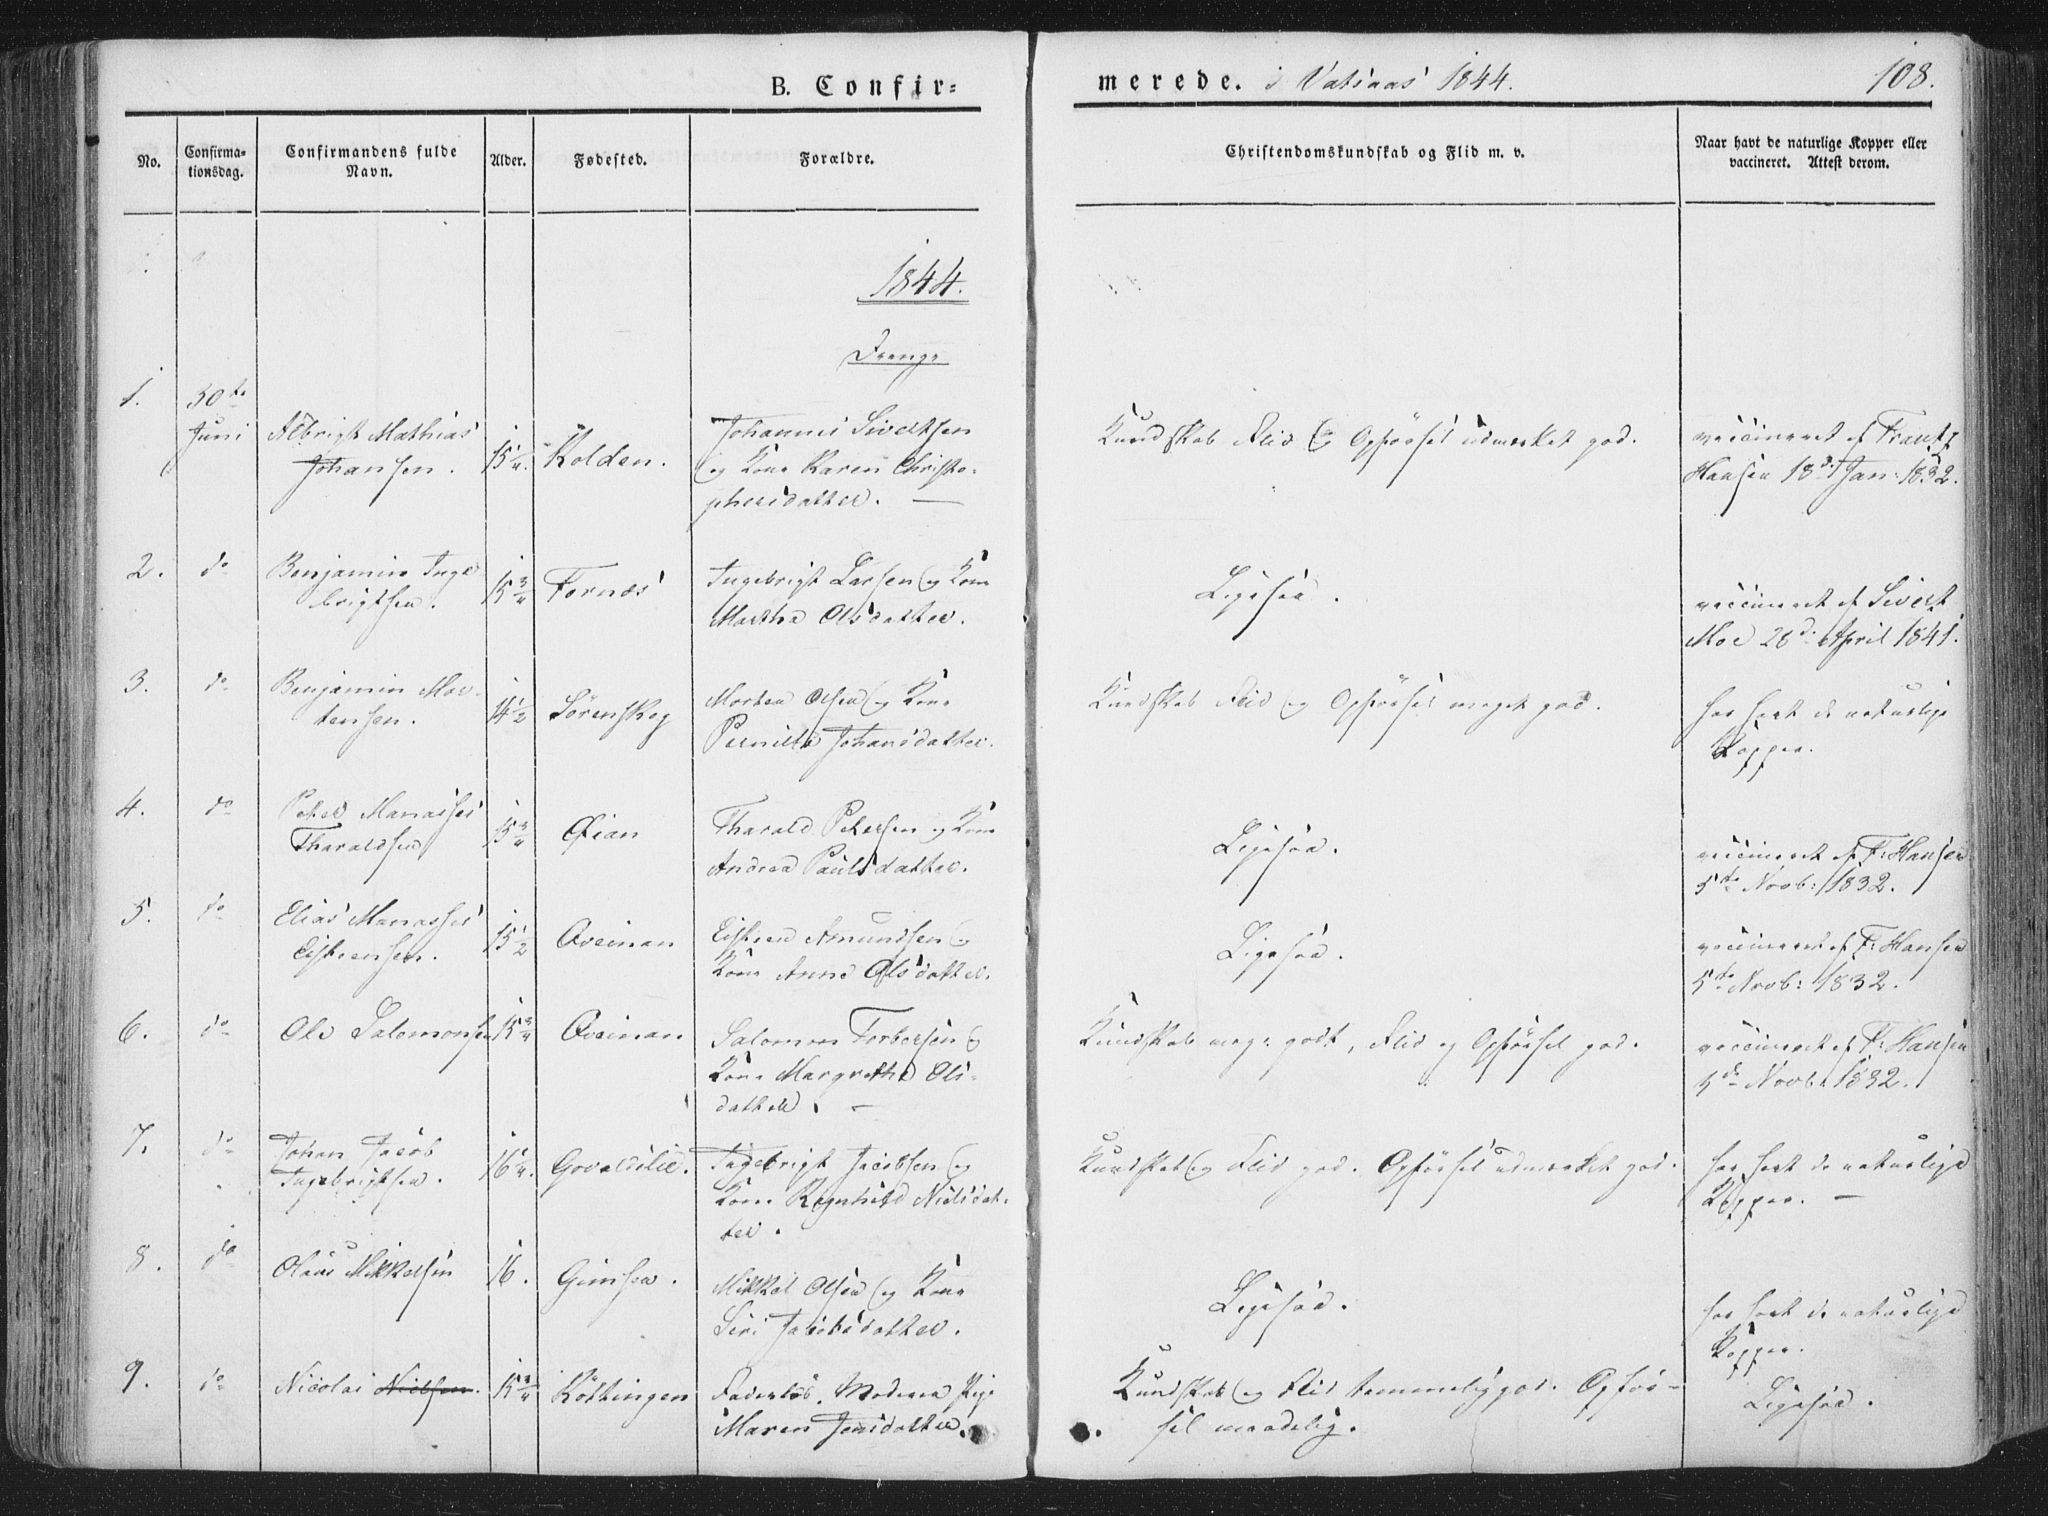 B. Confir=
merede. i Vatsaas 1844.
108.
No.
Confirma-
tionsdag.
Confirmandens fulde
Navn.
Alder.
Fødested.
Forældre.
Christendomskundskab og Flid m. v.
Naar havt de naturlige Kopper eller
vaccineret. Attest derom.
1844.
Drenge
1.
30te
Juni
Albrigt Mathias
Johansen.
15 1/4.
Kolden.
Johannes Sivertsen
og Kone Karen Christo-
phersdatter. —
Kundskab Flid & Opførsel udmærket god.
vaccineret af Frantz
Hansen 18d Jan: 1832.
2.
do
Benjamin Inge
brigtsen.
15 3/4
Fornæs
Ingebrigt Larsen og Kone
Martha Olsdatter.
Ligesaa.
vaccineret af Sivert
Moe 28d: April 1841.
3.
do
Benjamin Mor-
tensen.
14 1/2
Sörenskog
Morten Olsen og Kone
Pernille Johansdatter.
Kundskab Flid og Opførsel meget god.
har havt de naturlige
Kopper.
4.
do
Peter Manasses
Tharaldsen
15 3/4
Øian
Tharald Petersen og Kone
Andrea Paulsdatter.
Ligesaa.
vaccineret af F: Hansen
5te Novb: 1832.
5.
do
Elias Manasses
Eistensen.
15 1/2
Oveinan
Eisten Amundsen og
Kone Anne Olsdatter.
Ligesaa.
vaccineret af F: Hansen
5te Novb: 1832.
6.
do
Ole Salomonsen
15 3/4
Oveinan
Salomon Torbersen og
Kone Margrethe Ols-
datter. —
Kundskab meg: godt, Flid og Opførsel god.
vaccineret af F: Hansen
5de Novb: 1832.
7.
do
Johan Jacob
Ingebrigtsen.
16 1/4.
Govaldslie.
Ingebrigt Jacobsen og
Kone Ragnhild Nielsdat-
ter.
Kundskab og Flid god. Opførsel udmærket god.
har havt de naturlige
Kopper. —
8.
do
Olaus Mikkelsen
16.
Gimsen.
Mikkel Olsen og Kone
Siri Jacobsdatter.
Ligesaa.
har havt de naturlige
Kopper.
9.
do
Nicolai Nielsen.
15 3/4
Köttingen
Faderløs. Moderen Pige
Maren Jensdatter.
Kundskab og Flid temmelig god. Opfør-
sel maadelig.
Ligesaa.